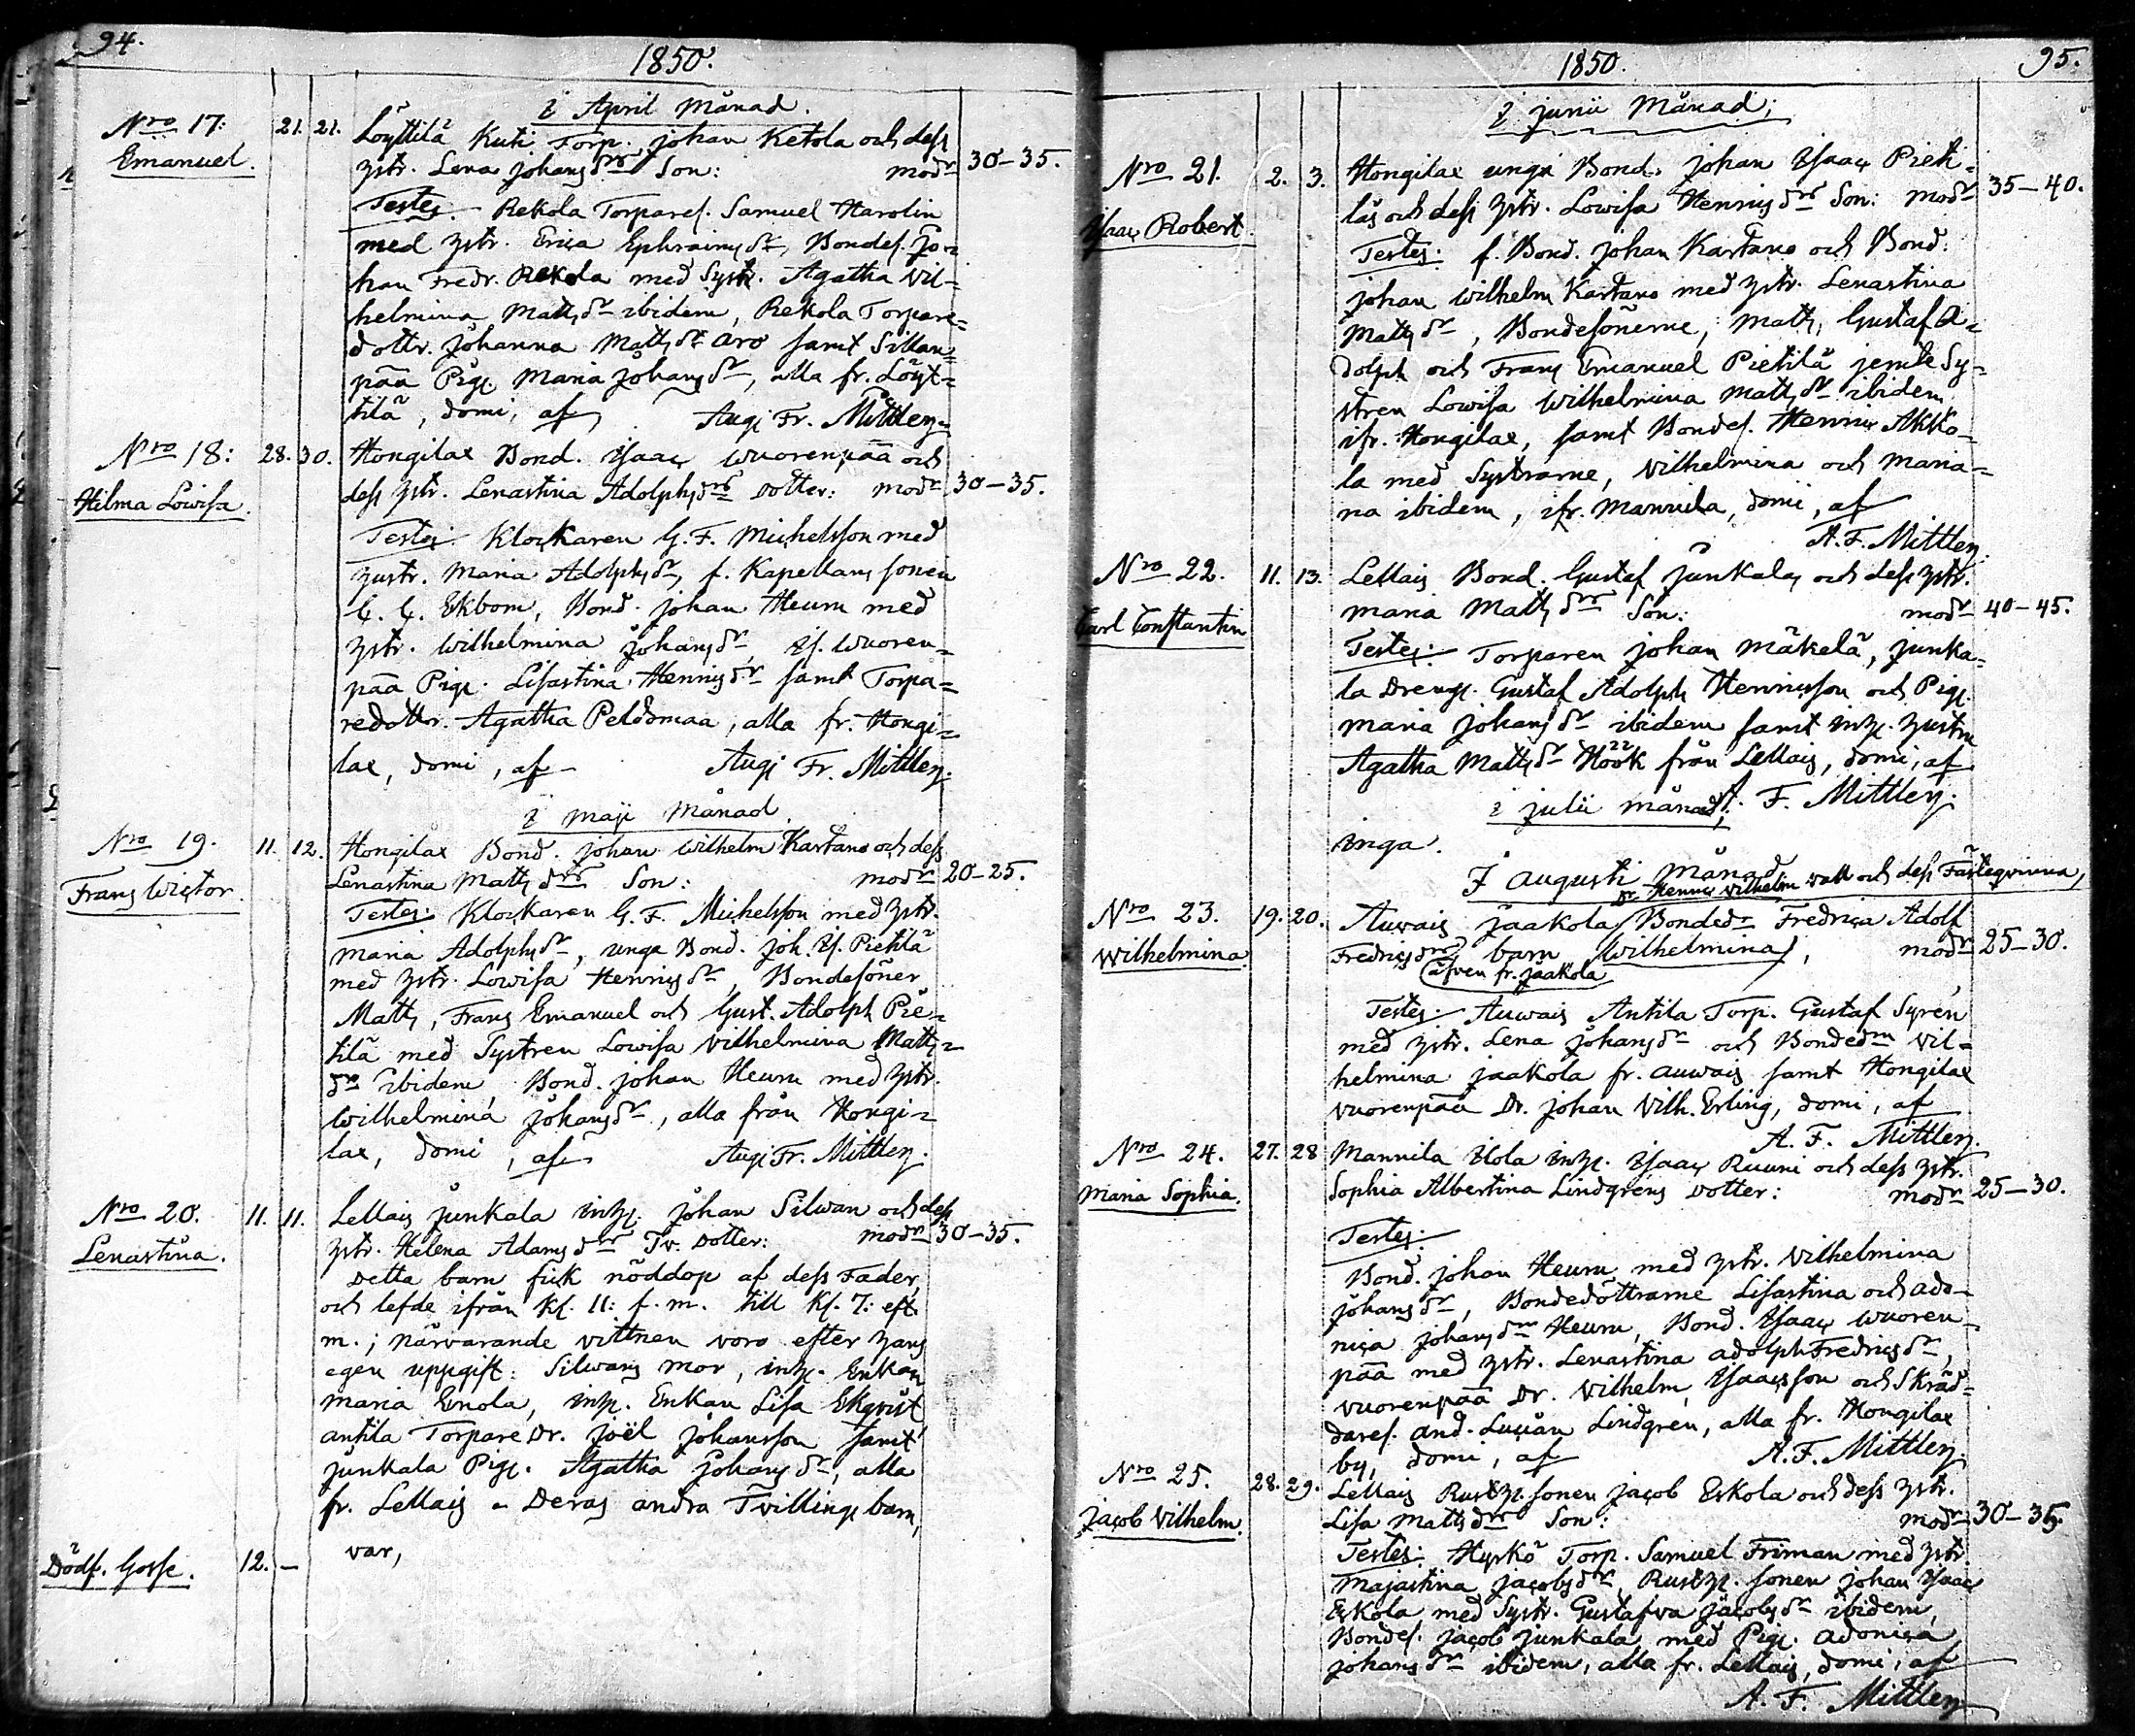 94.
1850.
i April Månad.
Nro 17: 21. 21. Löyttilä Kuti Torp. Johan Ketola och dess
Emanuel. Hstr. Lena Johansdr Son: modr 30–35.
Testes. Rekola Torpares. Samuel Harolin
med Hstr. Erica Ephraimsdr, Bondes. Jo-
han Fredr. Rekola med Systr. Agatha Vil-
helmina Mattsdr ibidem, Rekola Torpare-
dottr. Johanna Mattsdr Aro samt Sillan-
pää Pig. Maria Johansdr, alla fr. Löyt-
tilä, domi, af Aug: Fr. Mittler.
Nro 18: 28. 30. Hongilax Bond. Isaac Wuorenpää och
Hilma Lowisa. dess Hstr. Lenastina Adolphsdr Dotter: modr 30–35.
Testes. Klockaren G. F. Michelsson med
Hustr. Maria Adolphsdr, f. Kapellans sonen
C. C. Ekbom, Bond. Johan Heuru med
Hstr. Wilhelmina Johansdr, Is. Wuoren-
pää Pig. Lisastina Hennigsdr samt Torpa-
redottr. Agatha Peldomaa, alla fr. Hongi-
lax, domi, af Aug: Fr. Mittler.
i Maji Månad.
Nro 19. 11. 12. Hongilax Bond. Johan Wilhelm Kartano och dess
Frans Wictor. Lenastina Mattsdr Son: modr 20–25.
Testes: Klockaren G. F. Michelsson med Hstr.
Maria Adolphsdr, unga Bond. Joh. Is. Pietilä
med Hstr. Lowisa Hennigsdr, Bondesöner
Matts, Frans Emanuel och Gust. Adolph Pie-
tilä med Systren Lowisa Vilhelmina Matts-
dr ibidem Bond. Johan Heuru med Hstr.
Wilhelmina Johansdr, alla från Hongi-
lax, domi, af Aug: Fr. Mittler.
Nro 20. 11. 11. Lellais Junkala inh. Johan Silwan och dess
Lenastina. Hstr. Helena Adamsdr Tv. Dotter: modr 30–35.
Detta barn fick nöddop af dess Fader,
och lefde ifrån Kl. 11: f.m. till Kl. 7: eft.
m.; närvarande vittnen voro efter hans
egen uppgift: Silwans mor, inh. Enkan
Maria Enola, inh. Enkan Lisa Ekqvist
Antila Torpare Dr. Joël Johansson samt
Junkala Pig. Agatha Johansdr, alla
fr. Lellais. Deras andra Tvillinge barn,
Dödf. Gosse. 12. – var,
1850.
95.
i Junii Månad;
Nro 21. 2. 3. Hongilax unga Bond. Johan Isaac Pieti-
läs och dess Hstr. Lowisa Hennigsdr Son: modr 35–40.
Isaac Robert. Testes: f. Bond. Johan Kartano och Bond.
Johan Wilhelm Kartano med Hstr. Lenastina
Mattsdr, Bondesönerne, Matts, Gustaf A-
dolph och Frans Emanuel Pietilä jemte Sy-
stren Lowisa Wilhelmina Mattsdr ibidem
ifr. Hongilax, samt Bondes. Henric Akko-
la med Systrarne, Vilhelmina och Maria-
na ibidem, ifr. Mannila, domi, af
A. F. Mittler.
Nro 22. 11. 13. Lellais Bond. Gustaf Junkalas och dess Hstr.
Carl Constantin Maria Mattsdr Son: modr 40–45.
Testes: Torparen Johan Mäkelä, Junka-
la Dreng. Gustaf Adolph Henricsson och Pig.
Maria Johansdr ibidem samt inh. Hustru
Agatha Mattsdr Höök från Lellais, domi, af
i Julii Månad; A. F. Mittler.
inga.
I Augusti Månad
Dr. Henric Vilhelm Wall och dess Fästeqvinna,
Nro 23. 19. 20. Auwais Jaakola Bondedr Fredrica Adolf
Wilhelmina Fredricsdr barn Wilhelmina, modr 25–30.
(äfven fr. Jaakola
Testes: Auwais Antila Torp. Gustaf Syrén
med Hstr. Lena Johansdr och Bondedr Vil-
helmina Jaakola fr. Auwais samt Hongilax
Vuorenpää Dr. Johan Vilh. Erling, domi, af
A. F. Mittler.
Nro 24. 27. 28 Mannila Ilola inh. Isaac Ruuni och dess Hstr.
Maria Sophia. Sophia Albertina Lindgrens Dotter: modr 25–30.
Testes:
Bond. Johan Heuru med Hstr. Vilhelmina
Johansdr, Bondedöttrarne Lisastina och Ado-
nica Johansdr Heuru, Bond. Isaac Wuoren-
pää med Hstr. Lenastina Adolph Fredricsdr,
Vuorenpää Dr. Vilhelm Isaacsson och Skräd-
dares. And. Lucián Lindgren, alla fr. Hongilax
by, domi, af A. F. Mittler.
Nro 25. 28. 29. Lellais Rusth. sonen Jacob Eskola och dess Hstr.
Jacob Vilhelm. Lisa Mattsdr Son: modr 30–35.
Testes: Hyrkö Torp. Samuel Friman med Hstr.
Majastina Jacobsdr, Rusth. sonen Johan Isaac
Eskola med Systr. Gustafva Jacobsdr ibidem,
Bondes. Jacob Junkala med Pig. Adonica
Johansdr ibidem, alla fr. Lellais, domi, af
A. F. Mittler